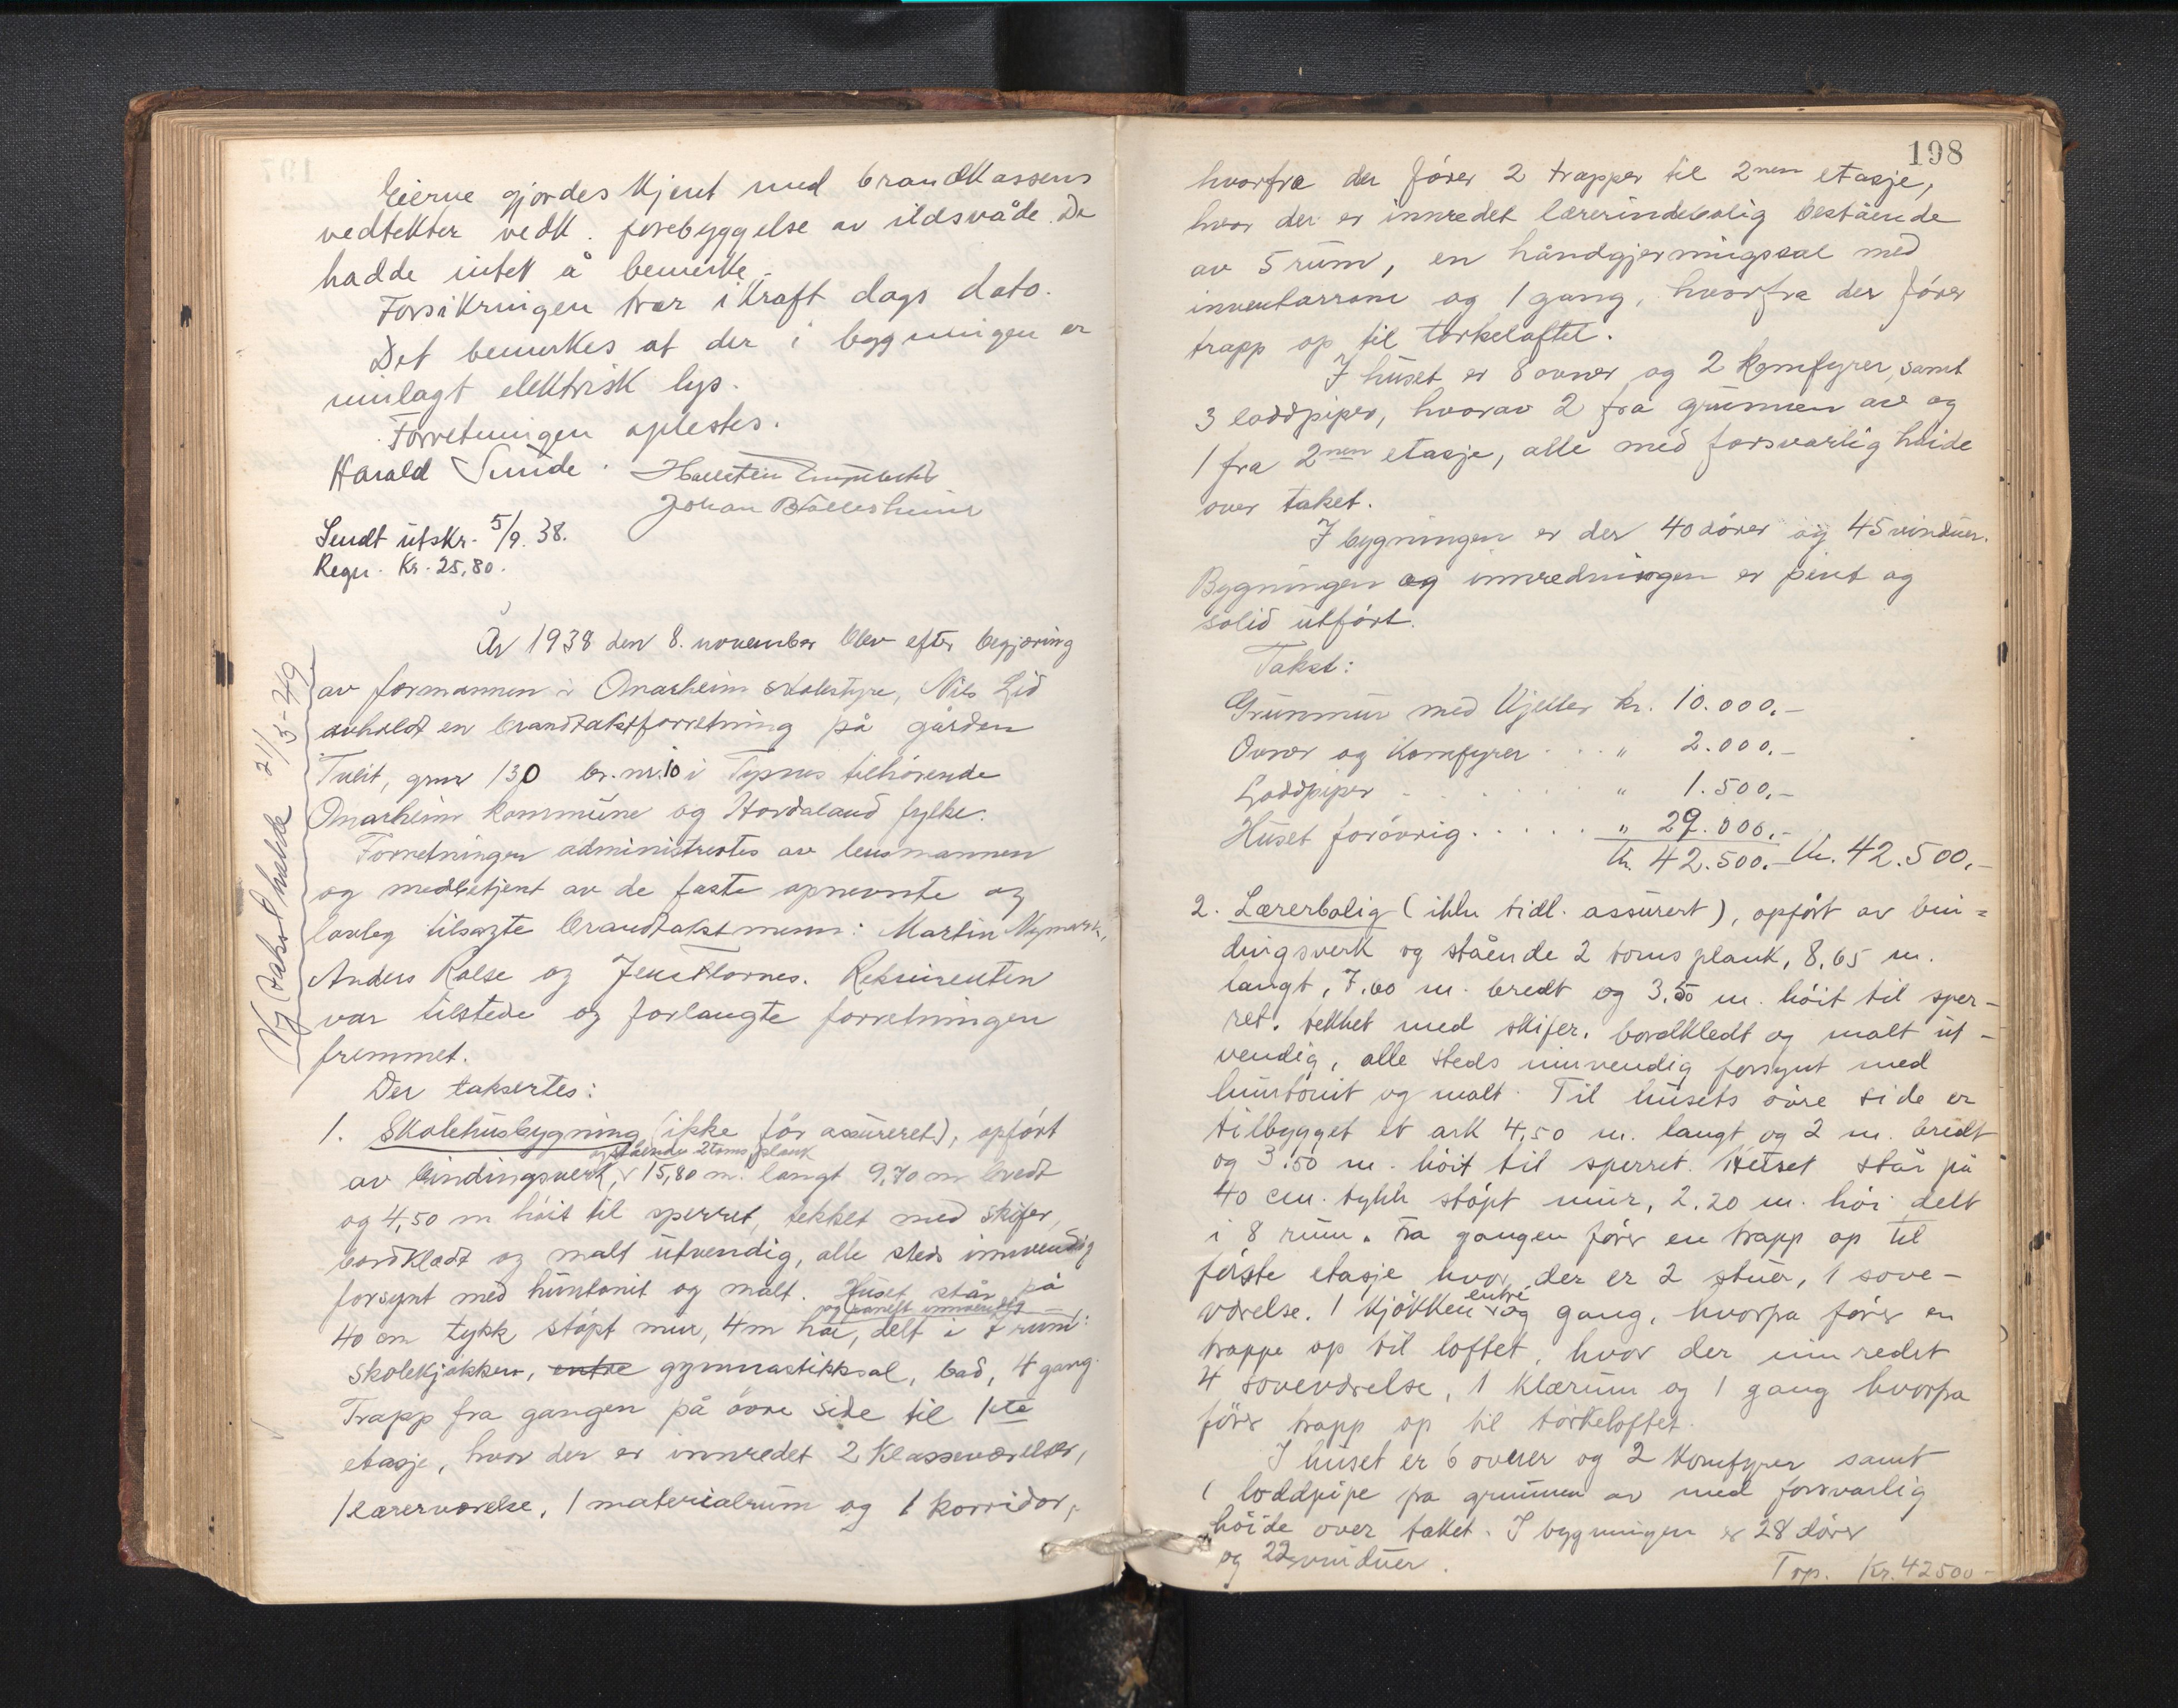 Eierne gjordes kjent med brandkassens
vedtekter vedk. forebyggelse av ildsvåde. De
hadde intet å bemerke.
Forsikringen trær i kraft dags dato.
Det bemerkes at der i bygningen er
innlagt elektrisk lys.
Forretningen oplestes.
Harald Sunde.
Johan
Sendt utskr. 5/9. 38.
Regn. Kr. 25,80.
År 1938 den 8. november blev efter begjæring
av formannen i Onarheim skolestyre, Nils Lid
avholdt en brandtakstforretning på gården
Tveit, gnr 130 br. nr. 10 i Tysnes tilhørende
Onarheim kommune og Hordaland fylke.
Forretningen administrertes av lensmannen
og medbetjent av de faste opnevnte og
lovleg tilsagte brandtakstmenn: Martin Nymark,
Anders Kalse og Jens Flornes. Rekvirenten
var tilstede og forlangte forretningen
fremmet.
Der taksertes:
1. Skolehusbygning (ikke før assureret), opført
og stående 2 toms plank
av bindingsverk, 15,80 m. langt 9,70 m bredt
og 4,50 m høit til sperret, tekket med skifer,
bordklædt og malt utvendig, alle steds innvendig
forsynt med huntonit og malt. Huset står på
og panelt innvendig
40 cm tykk støpt mur, 4 m høi, delt i 7 rum:
Skolekjøkken, entre gymnastikksal, bad, 4 gang.
Trapp fra gangen på øvre side til 1ste
etasje, hvor der er innredet 2 klasseværelser,
1 lærerværelse, 1 materialrum og 1 korridor,
Ny takst helde 21/5-49
198
hvorfra der fører 2 trapper til 2nen etasje,
hvor der er innredet lærerindebolig bestående
av 5 rum, en håndgjerningssal med
inventarrom og 1 gang, hvorfra der fører
trapp op til tørkeloftet.
I huset er 8 ovner og 2 komfyrer, samt
3 loddpiper, hvorav 2 fra grunnen av og
1 fra 2nen etasje, alle med forsvarlig høide
over taket.
I bygningen er der 40 dører og 45 vinduer.
Bygningen og innredningen er pent og
solid utført.
Takst:
Grunnmur med kjeller kr. 10.000.-
Ovner og komfyrer . . . " 2.000.-
Loddpiper . . . . . . " 1.500.-
Huset forøvrig . . . . . " 29.000.-
Kr. 42.500.- Kr. 42.500.-
2. Lærerbolig (ikke tidl. assurert), opført av bin=
dingsverk og stående 2 toms plank, 8,65 m.
langt, 7.00 m. bredt og 3,50 m. høit til sper-
ret. tekket med skifer. bordkledt og malt ut-
vendig, alle steds innvendig forsynt med
huntonit og malt. Til husets øvre side er
tilbygget et ark 4,50 m. langt og 2 m. bredt
og 3.50 m. høit til sperret. Huset står på
40 cm. tykk støpt mur, 2.20 m. høi delt
i 8 rum. Fra gangen fører en trapp op til
første etasje hvor der er 2 stuer, 1 sove-
entré
værelse. 1 kjøkken og gang, hvorfra fører en
trappe op til loftet, hvor der innredet
4 soveværelse, 1 klærum og 1 gang hvorfra
fører trapp op til tørkeloftet.
I huset er 6 ovner og 2 komfyrer samt
1 loddpipe fra grunnen av med forsvarlig
høide over taket. I bygningen er 28 dører
og 22 vinduer.
Trp. Kr. 42500-